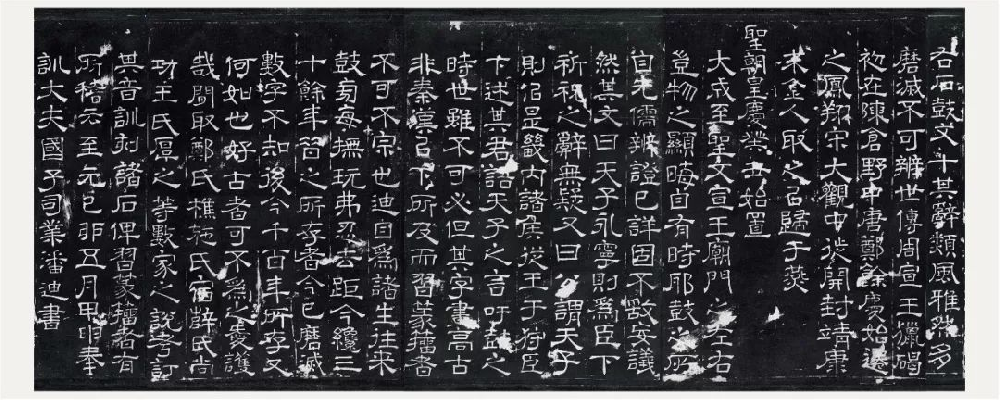 右石鼓文十其辭類風雅然多
磨滅不可辨世傳周宣王獵碣
初在陳倉野中唐鄭餘慶始遷
之鳳翔宋大觀中徙開封靖康
末金人取之以歸于燕
聖朝皇慶癸丑始置
大成至聖文宣王廟門之左右
豈物之顯晦自有時耶鼓之所
自先儒辨證已詳固不敢妄議
然其文曰天子永寧則爲臣下
祈祝之辭無疑又曰公謂天子
則似是畿內諸侯從王于狩臣
下述其君語天子之言吁鼓之
時世雖不可必但其字畫高古
非秦漢以下所及而習篆籀書
不可不宗也迪自爲諸生往來
鼓旁每撫玩弗忍去距今纔三
十餘年昔之所存者今已磨滅
數字不知後今千百年所存又
何如也好古者可不爲之愛護
哉間取鄭氏樵施氏宿薛氏尚
功王氏厚之等數家之說考訂
其音訓刻諸石俾習篆籀者有
所稽云至元己卯五月甲申奉
訓大夫國子司業潘迪書